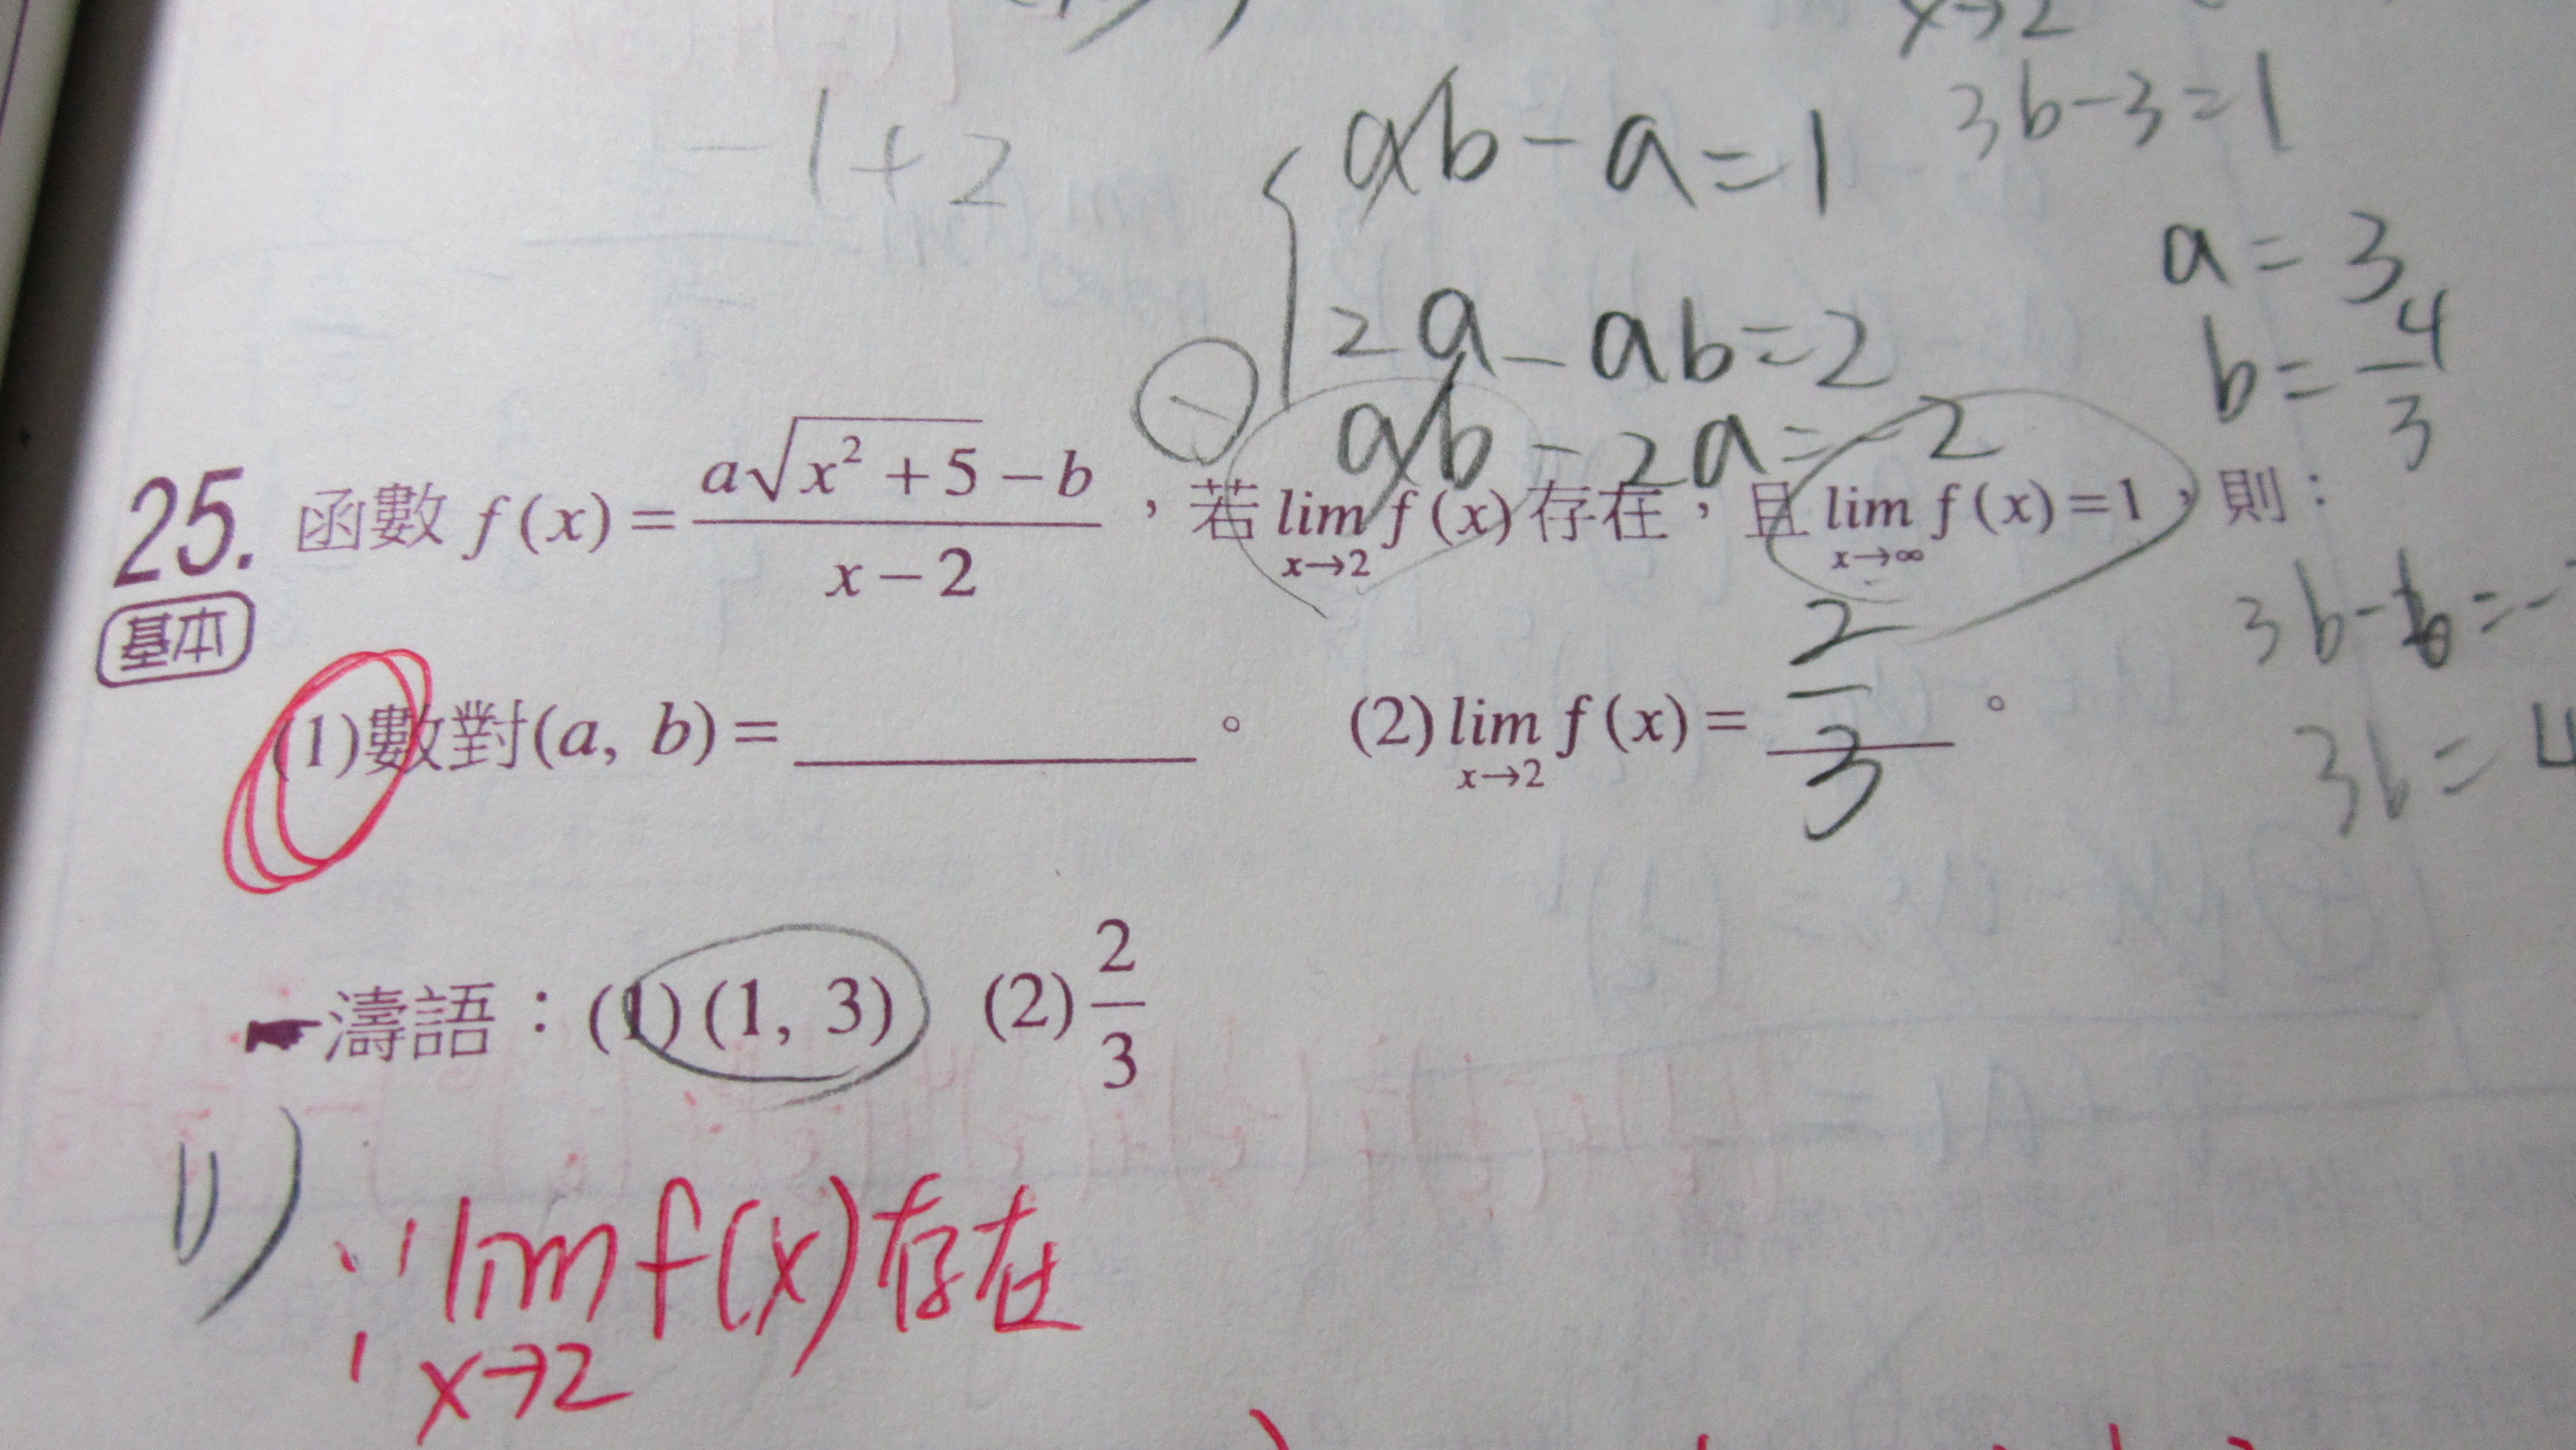 x→2
-1+2
ab-a=1
3b-3=1
2a-ab=2
ab-2a=-2
a=3
b=4/3
25. 函數 f(x)=(a√(x²+5)-b)/(x-2)，若 lim x→2 f(x) 存在，且 lim x→∞ f(x)=1，則：
基本
3b-6=-
3b=4
(1)數對(a, b)=______。 (2) lim x→2 f(x)= 2/3 。
濤語：(1)(1, 3) (2) 2/3
1)
∵ lim x→2 f(x)存在